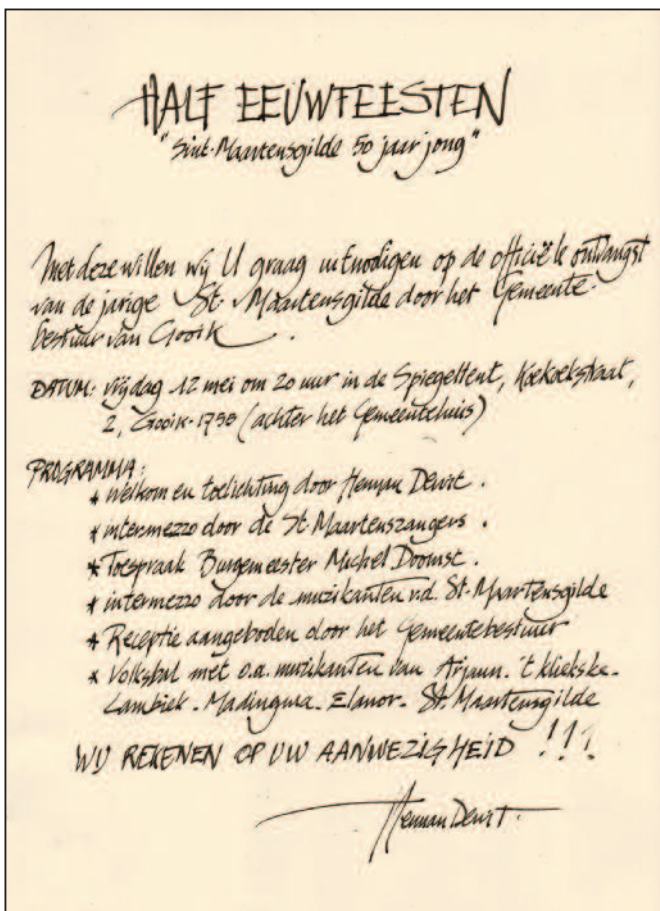 HALF EEUWFEESTEN
"Sint-Maartensgilde 50 jaar jong"
Met deze willen wij U graag uitnodigen op de officiële ontvangst
van de jarige St. Maartensgilde door het Gemeente-
bestuur van Gooik.
DATUM: vrijdag 12 mei om 20 uur in de Spiegeltent, Koekoekstraat,
2, Gooik-1755 (achter het Gemeentehuis)
PROGRAMMA:
* Welkom en toelichting door Herman Dewit.
* intermezzo door de St. Maartenszangers.
* Toespraak Burgemeester Michel Doomst.
* intermezzo door de muzikanten v.d. St. Maartensgilde
* Receptie aangeboden door het Gemeentebestuur
* Volksbal met o.a. muzikanten van Arjaun. 't kliekske-
Lambiek. Madingma. Elanor. St. Maartensgilde
WIJ REKENEN OP UW AANWEZIGHEID !!!
Herman Dewit.